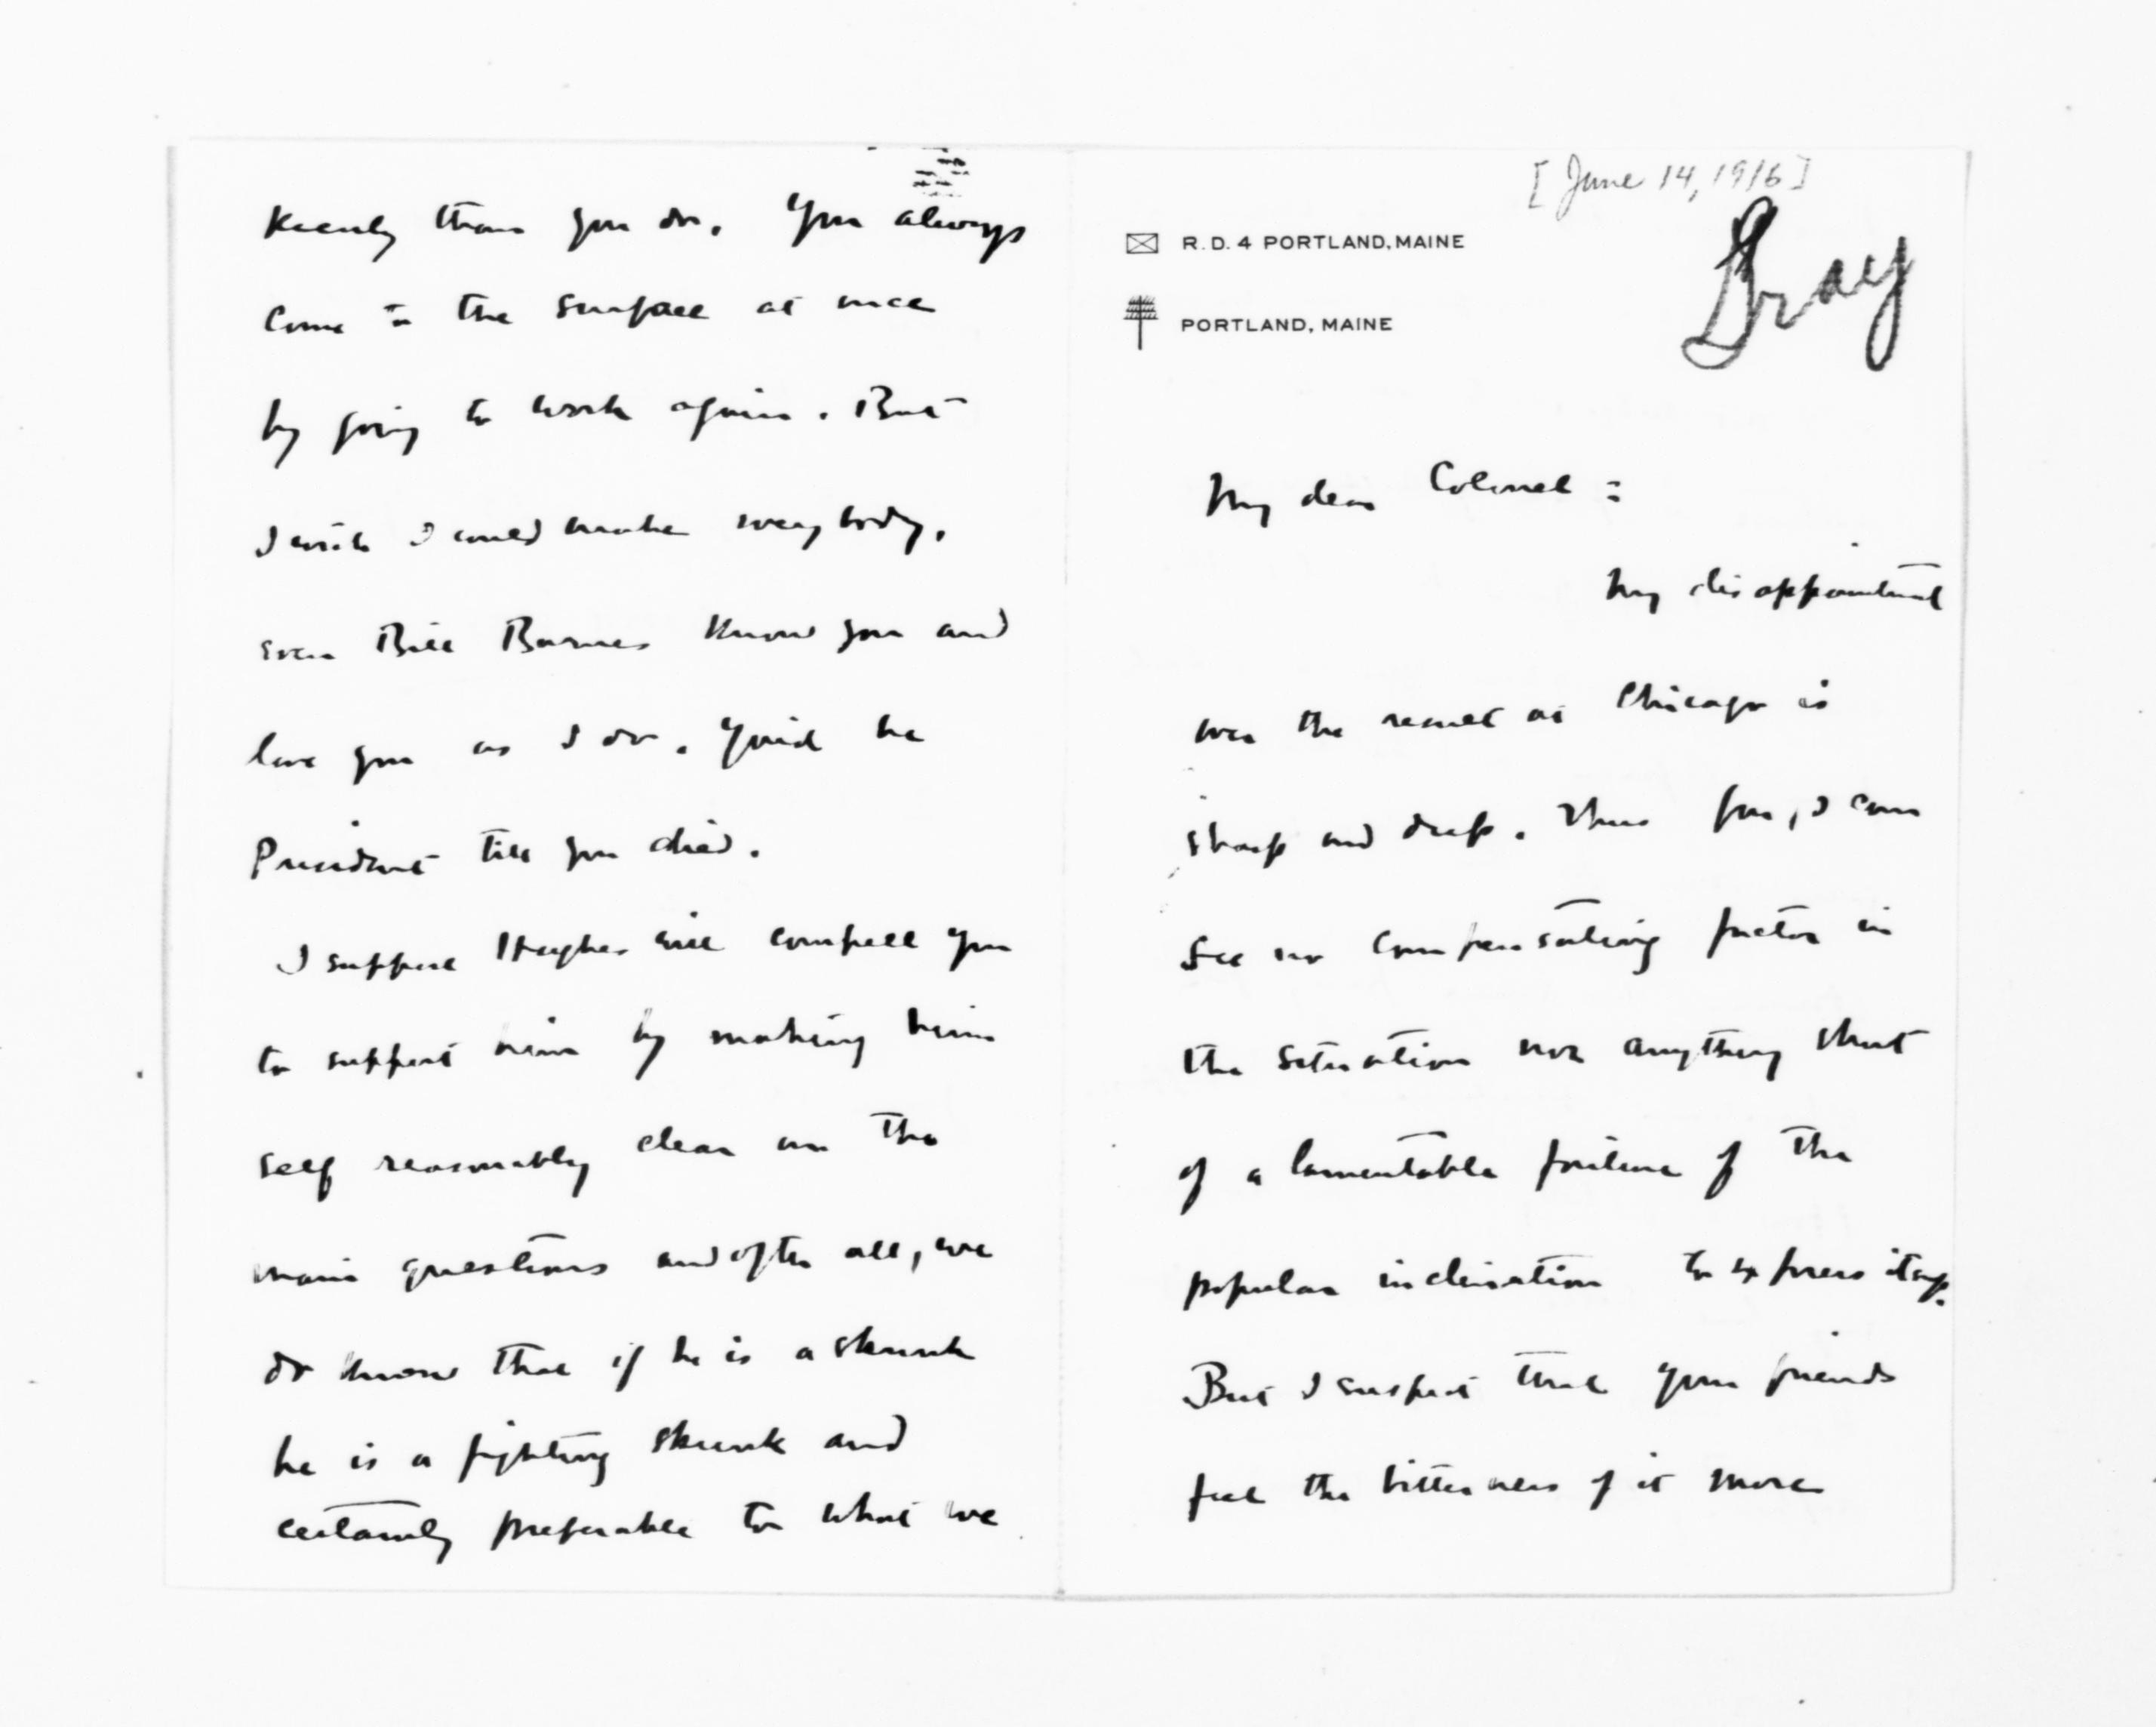 [June 14, 1916]
Gray
R. D. 4 PORTLAND, MAINE
PORTLAND, MAINE
My dear Colonel:
My disappointment
over the result at Chicago is
sharp and deep. Thus far, I can
see no compensating factor in
the situation nor anything short
of a lamentable failure of the
popular inclination to express itself.
But I suspect that your friends
feel the bitterness of it more
keenly than you do. You always
come to the surface at once
by going to work again. But
I wish I could make everybody,
even Bill Barnes know you and
love you as I do. You'd be
President till you died.
I suppose Hughes will compell you
to support him by making him
self reasonably clear on the
main questions and after all, we
do know that if he is a skunk
he is a fighting skunk and
certainly preferable to what we